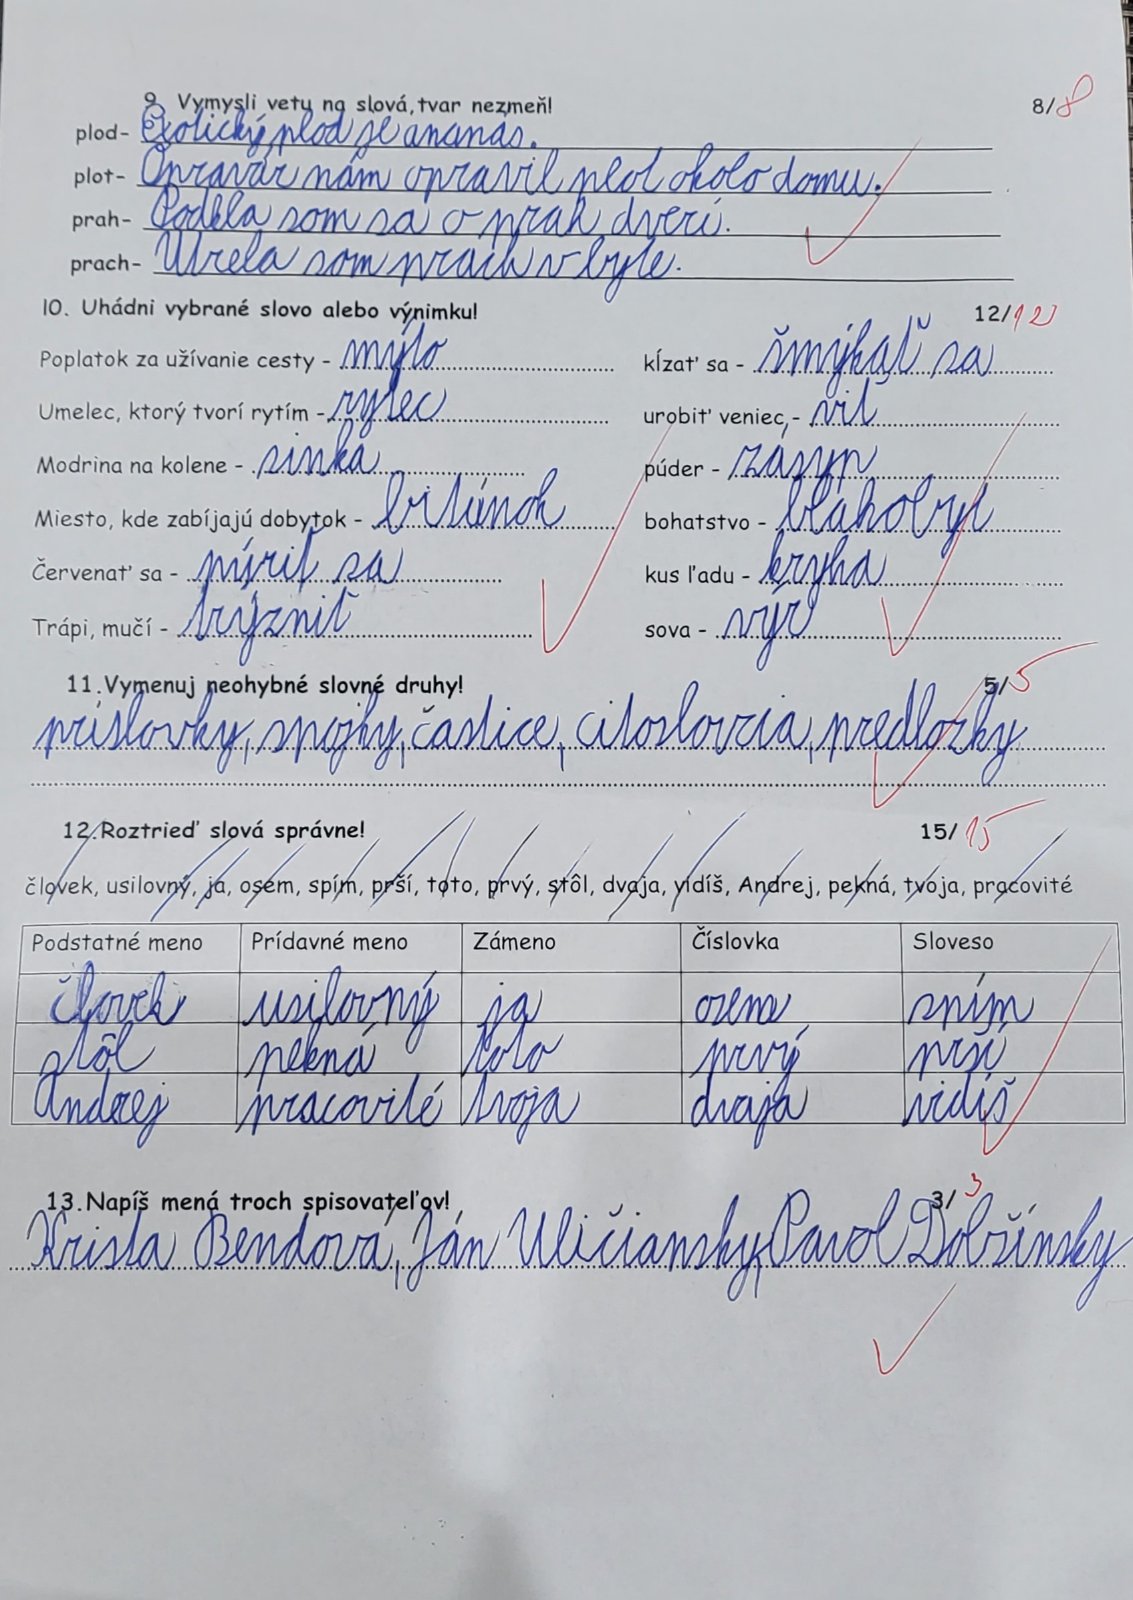 9. Vymysli vetu na slová, tvar nezmeň! 8/8
plod- Exotický plod je ananás.
plot- Opravár nám opravil plot okolo domu.
prah- Potkla som sa o prah dverí.
prach- Utrela som prach v byte.
10. Uhádni vybrané slovo alebo výnimku! 12/12
Poplatok za užívanie cesty - mýto kĺzať sa - šmýkať sa
Umelec, ktorý tvorí rytím - rytec urobiť veniec - viť
Modrina na kolene - sinka púder - zásyp
Miesto, kde zabíjajú dobytok - bitúnok bohatstvo - blahobyt
Červenať sa - pýriť sa kus ľadu - kryha
Trápi, mučí - trýzniť sova - výr
11. Vymenuj neohybné slovné druhy! 5/5
príslovky, spojky, častice, citoslovcia, predložky
12. Roztrieď slová správne! 15/15
človek, usilovný, ja, osem, spím, prší, toto, prvý, stôl, dvaja, vidíš, Andrej, pekná, tvoja, pracovité
Podstatné meno Prídavné meno Zámeno Číslovka Sloveso
človek usilovný ja osem spím
stôl pekná toto prvý prší
Andrej pracovité tvoja dvaja vidíš
13. Napíš mená troch spisovateľov! 3/3
Krista Bendová, Ján Uličiansky, Pavol Dobšínsky